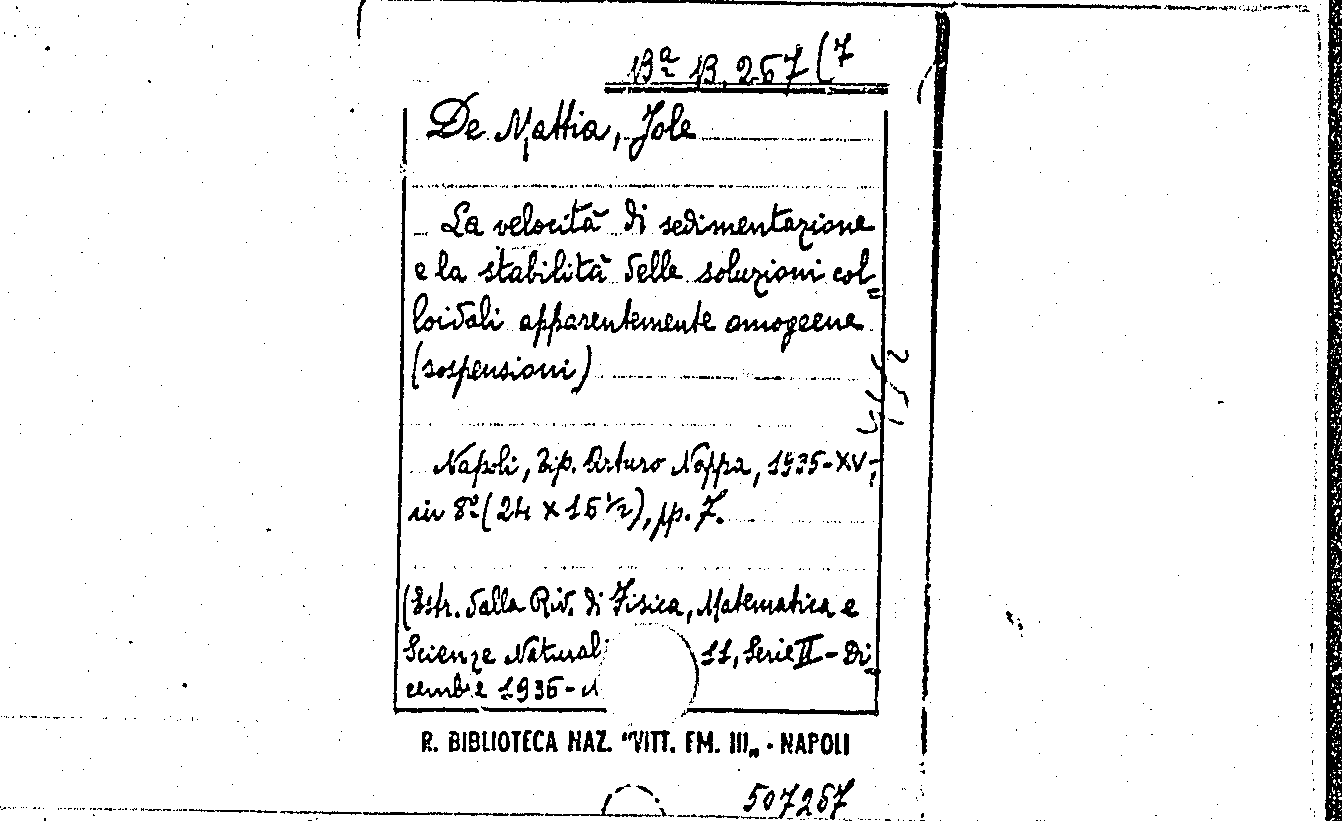 Bª B. 267 (7
De Mattia, Jole
La velocità di sedimentazione
e la stabilità delle soluzioni col„
loidali apparentemente omogeene
(sospensioni)
Napoli, Tip. Arturo Nappa, 1935-XV-,
in 8º (24 x 16 ½), pp. 7.
(Estr. dalla Riv. di Fisica, Matematica e
Scienze Naturali 11, Serie II - Di„
cembre 1936 -
R. BIBLIOTECA NAZ. "VITT. EM. III„ - NAPOLI
507267